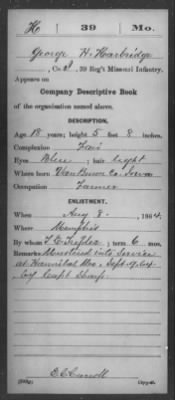 H | 39 | Mo.
George H. Harbridge
, Co. , 39 Reg't Missouri Infantry.
Appears on
Company Descriptive Book
of the organization named above.
DESCRIPTION.
Age 18 years; height 5 feet 8 inches.
Complexion Fair
Eyes Blue; hair Light
Where born Van Buren Co. Iowa
Occupation Farmer
ENLISTMENT.
When Aug 8, 1864.
Where Memphis
By whom ; term 6 mos.
Remarks: Mustered into Service
at Hannibal Mo. Sept 19, 64
by Capt Sharp.
Copyist.